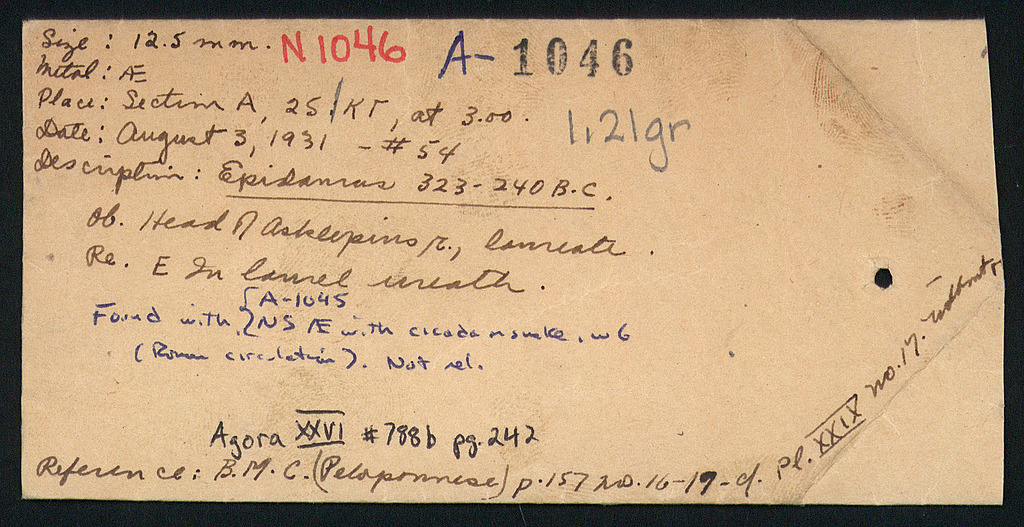 Size: 12.5 mm. N1046 A-1046
Metal: Æ
Place: Section A, 25/ΚΓ, at 3.00.
Date: August 3, 1931 - #54 1,21gr
Description: Epidaurus 323-240 B.C.
Ob. Head of Asklepius r., laureate.
Re. E In laurel wreath.
Found with { A-1045
NS Æ with cicada n snake, w6
(Roman circulation). Not rel.
Agora XXVI #788b pg. 242
Reference: B.M.C. (Peloponnese) p.157 no. 16-19-cf. pl. XXIX no. 17.